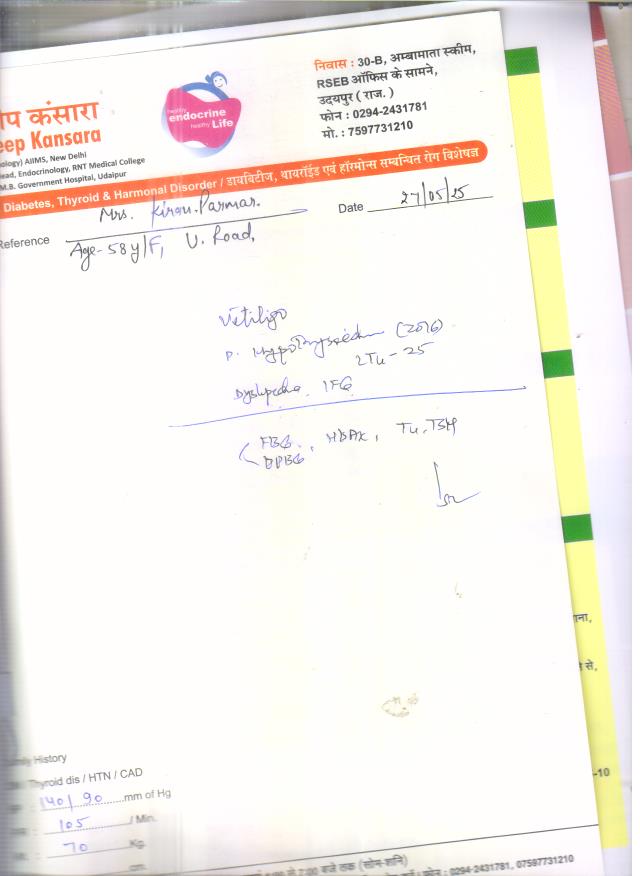 निवास : 30-B, अम्बामाता स्कीम,
RSEB ऑफिस के सामने,
उदयपुर ( राज. )
फोन : 0294-2431781
मो. : 7597731210
प कंसारा
eep Kansara
ology) AIIMS, New Delhi
ead, Endocrinology, RNT Medical College
M.B. Government Hospital, Udaipur
healthy
endocrine
healthy Life
Diabetes, Thyroid & Harmonal Disorder / डायबिटीज, थायरॉईड एवं हॉरमोन्स सम्बन्धित रोग विशेषज्ञ
Mrs. Kiran Parmar.
Date 27/05/25
Reference
Age-58y/F, U. Road,
Vitiligo
P. (2016)
LTu-25
IFG
FBG, HbA1c, Tu, TSH
PPBG
ना,
से,
-10
mily History
Thyroid dis / HTN / CAD
140/90 mm of Hg
105 / Min.
70 Kg.
cm.
से 7:00 बजे तक (सोम-शनि)
फोन : 0294-2431781, 07597731210